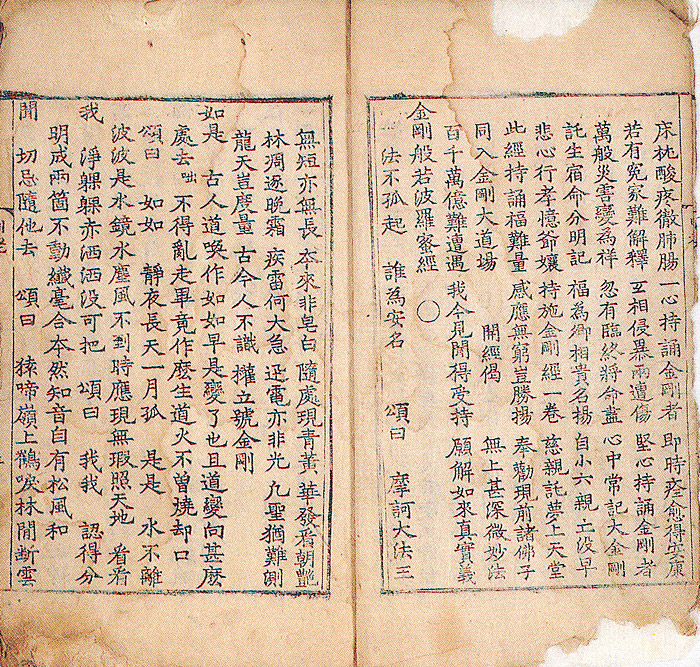 床枕酸疼徹肺腸 一心持誦金剛者 即時痊愈得安康
若有冤家難解釋 互相侵暴兩遭傷 堅心持誦金剛者
萬般災害變為祥 忽有臨終將命盡 心中常記大金剛
託生宿命分明記 福為卿相貴名揚 自小六親亡沒早
悲心行孝憶爺孃 持施金剛經一卷 慈親託夢上天堂
此經持誦福難量 感應無窮豈勝揚 奉勸現前諸佛子
同入金剛大道場 開經偈 無上甚深微妙法
百千萬億難遭遇 我今見聞得受持 願解如來真實義
金剛般若波羅蜜經 ○
法不孤起 誰為安名 頌曰 摩訶大法王
無短亦無長 本來非皂白 隨處現青黃 華發看朝艷
林凋逐晚霜 疾雷何大急 迅電亦非光 凡聖猶難測
龍天豈度量 古今人不識 權立號金剛
如是 古人道喚作如如早是變了也且道變向甚麽
處去 咄 不得亂走畢竟作麽生道火不曾燒却口
頌曰 如如 靜夜長天一月孤 是是 水不離
波波是水鏡水塵風不到時應現無瑕照天地 看看
我 淨躶躶赤洒洒没可把 頌曰 我我 認得分
明成兩箇不動纖毫合本然知音自有松風和
聞 切忌隨他去 頌曰 猿啼嶺上鶴唳林間斷雲